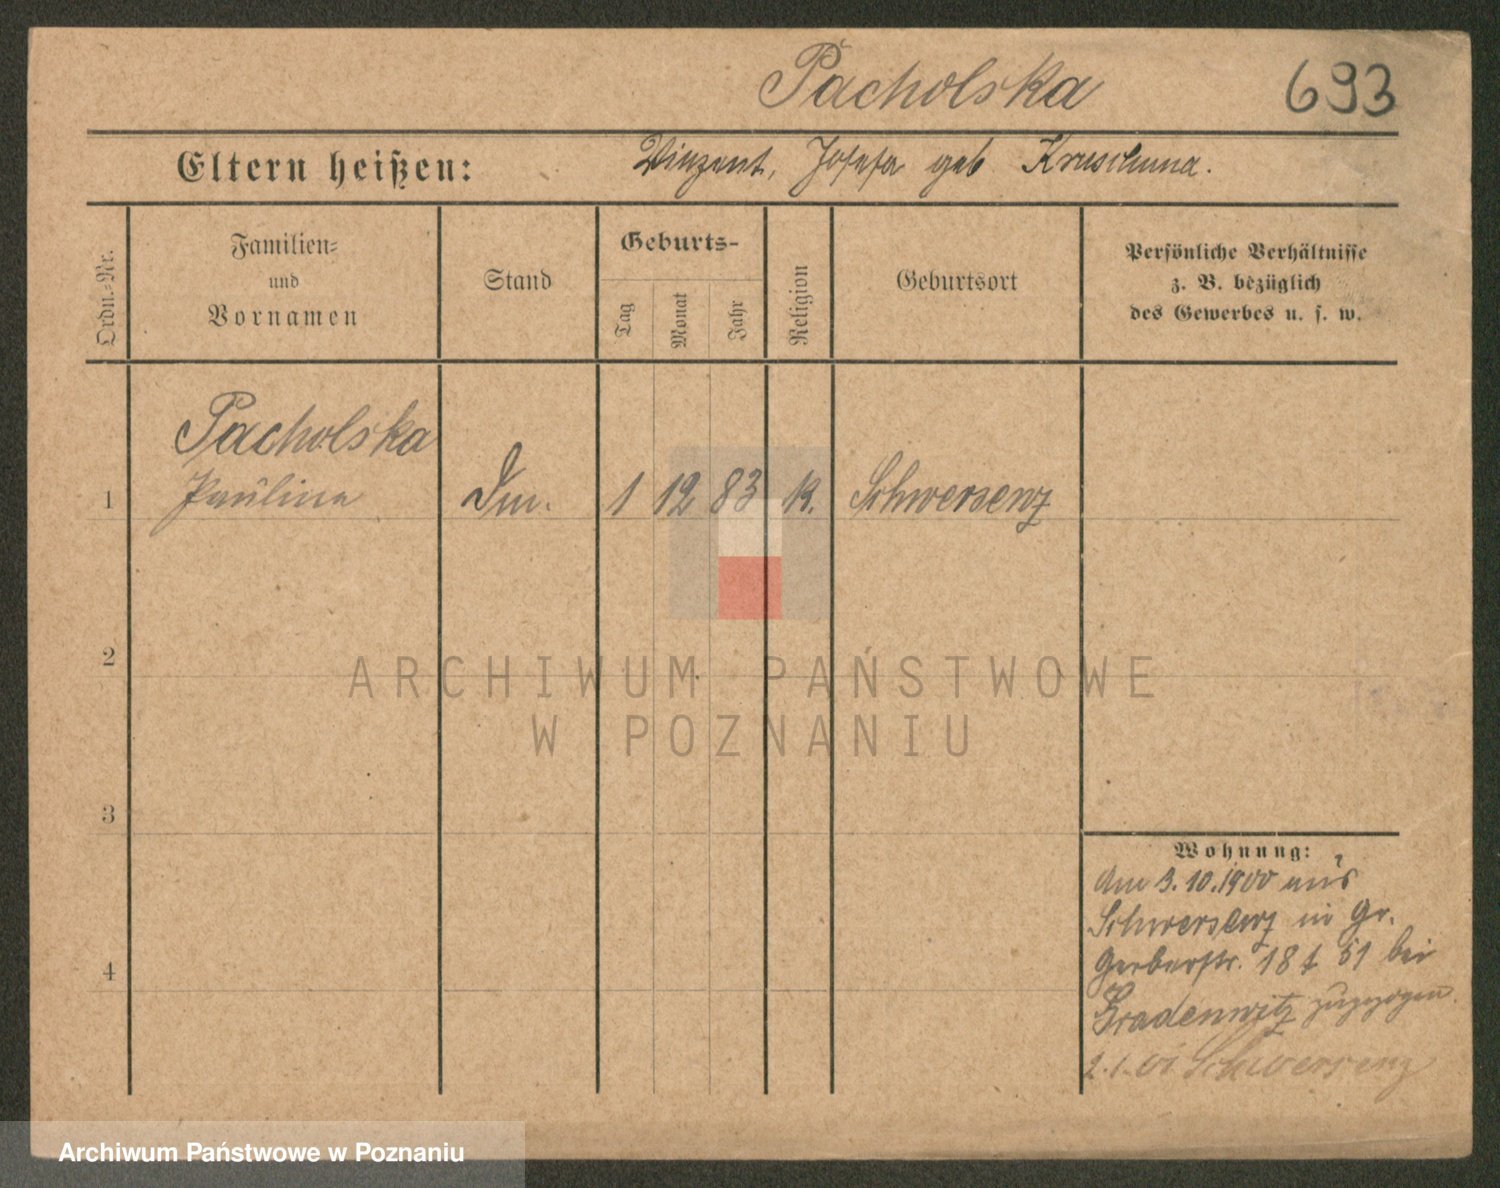 Pacholska
693
Eltern heißen: Vinzent, Josefa geb Kruschuna.
Ordn.-Nr.
Familien-
und
Vornamen
Stand
Geburts-
Tag
Monat
Jahr
Religion
Geburtsort
Persönliche Verhältnisse
z. B. bezüglich
des Gewerbes u. s. w.
Pacholska
1 Paulina 1 12 83 k. Schwersenz
2
ARCHIWUM PAŃSTWOWE
W POZNANIU
3
Wohnung:
Am 3.10.1900 aus
Schwersenz in Gr.
Gerberstr. 18 t 51 bei
4
Gradenwitz zugezogen.
2.1.01 Schwersenz
Archiwum Państwowe w Poznaniu